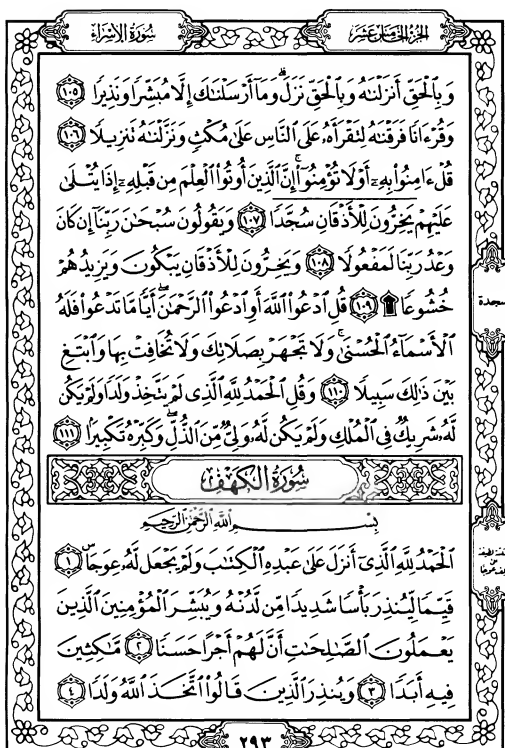 سُورَةُ الإِسْرَاءِ
الجُزْءُ الخَامِسَ عَشَرَ
وَبِٱلْحَقِّ أَنزَلْنَٰهُ وَبِٱلْحَقِّ نَزَلَ ۗ وَمَآ أَرْسَلْنَٰكَ إِلَّا مُبَشِّرًا وَنَذِيرًا ١٠٥
وَقُرْءَانًا فَرَقْنَٰهُ لِتَقْرَأَهُۥ عَلَى ٱلنَّاسِ عَلَىٰ مُكْثٍ وَنَزَّلْنَٰهُ تَنزِيلًا ١٠٦
قُلْ ءَامِنُوا۟ بِهِۦٓ أَوْ لَا تُؤْمِنُوٓا۟ ۚ إِنَّ ٱلَّذِينَ أُوتُوا۟ ٱلْعِلْمَ مِن قَبْلِهِۦٓ إِذَا يُتْلَىٰ
عَلَيْهِمْ يَخِرُّونَ لِلْأَذْقَانِ سُجَّدًا ١٠٧ وَيَقُولُونَ سُبْحَٰنَ رَبِّنَآ إِن كَانَ
وَعْدُ رَبِّنَا لَمَفْعُولًا ١٠٨ وَيَخِرُّونَ لِلْأَذْقَانِ يَبْكُونَ وَيَزِيدُهُمْ
خُشُوعًا ۩ ١٠٩ قُلِ ٱدْعُوا۟ ٱللَّهَ أَوِ ٱدْعُوا۟ ٱلرَّحْمَٰنَ ۖ أَيًّا مَّا تَدْعُوا۟ فَلَهُ
ٱلْأَسْمَآءُ ٱلْحُسْنَىٰ ۚ وَلَا تَجْهَرْ بِصَلَاتِكَ وَلَا تُخَافِتْ بِهَا وَٱبْتَغِ
بَيْنَ ذَٰلِكَ سَبِيلًا ١١٠ وَقُلِ ٱلْحَمْدُ لِلَّهِ ٱلَّذِى لَمْ يَتَّخِذْ وَلَدًا وَلَمْ يَكُن
لَّهُۥ شَرِيكٌ فِى ٱلْمُلْكِ وَلَمْ يَكُن لَّهُۥ وَلِىٌّ مِّنَ ٱلذُّلِّ ۖ وَكَبِّرْهُ تَكْبِيرًۢا ١١١
سُورَةُ الكَهْفِ
بِسْمِ ٱللَّهِ ٱلرَّحْمَٰنِ ٱلرَّحِيمِ
ٱلْحَمْدُ لِلَّهِ ٱلَّذِىٓ أَنزَلَ عَلَىٰ عَبْدِهِ ٱلْكِتَٰبَ وَلَمْ يَجْعَل لَّهُۥ عِوَجَاۜ ١
قَيِّمًا لِّيُنذِرَ بَأْسًا شَدِيدًا مِّن لَّدُنْهُ وَيُبَشِّرَ ٱلْمُؤْمِنِينَ ٱلَّذِينَ
يَعْمَلُونَ ٱلصَّٰلِحَٰتِ أَنَّ لَهُمْ أَجْرًا حَسَنًا ٢ مَّٰكِثِينَ
فِيهِ أَبَدًا ٣ وَيُنذِرَ ٱلَّذِينَ قَالُوا۟ ٱتَّخَذَ ٱللَّهُ وَلَدًا ٤
سجدة
٢٩٣